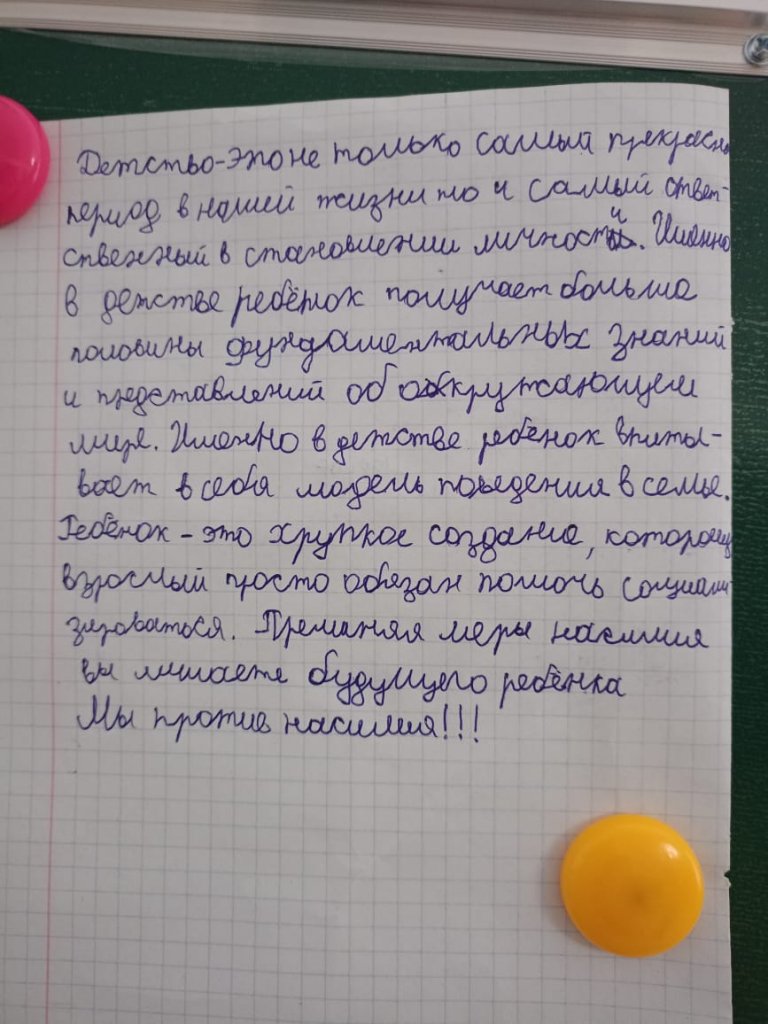 Детство-это не только самый прекрасн
период в нашей жизни но и самый ответ-
ственный в становлении личности. Именно
в детстве ребёнок получает больше
половины фундаментальных знаний
и представлений об окружающем
мире. Именно в детстве ребёнок впиты-
вает в себя модель поведения в семье.
Ребёнок - это хрупкое создание, которому
взрослый просто обязан помочь социали
зироваться. Применяя меры насилия
вы лишаете будущего ребёнка
Мы против насилия!!!